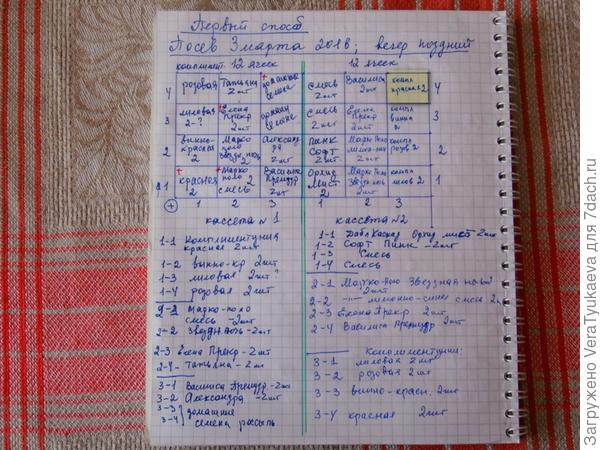 Первый способ
Посев 3 марта 2018, вечер поздний
комплимент. 12 ячеек
12 ячеек
4 розовая Татьяна 2шт + домашние семена
3 лиловая 2-? Елена Прекр 2шт домашн семена
2 винно-красная 2 Марко поло звездн ночь Александра 2шт
1 красная 2 Марко поло смесь Василиса Премудр 2шт
1 2 3
смесь 2шт Василиса 2шт компл красная 2 4
смесь 2шт Елена Прекр 2шт компл винна 2 3
Пинк Софт 2шт Марко Поло компл розов 2 2
Орхид Мист 2 Марко Поло Звездн ночь компл лилов 2 1
1 2 3
кассета N 1
1-1 Комплиментуния красная 2шт
1-2 винно-кр 2шт
1-3 лиловая 2шт?
1-4 розовая 2шт
2-1 Марко-поло смесь 2шт
2-2 Звездн ночь-2шт
2-3 Елена Прекр-2шт
2-4- Татьяна-2шт
3-1 Василиса Премудр-2шт
3-2 Александра-2шт
3-3 домашние
3-4 семена россыпь
кассета N2
1-1 Дабл Каскад Орхид мист 2шт
1-2 Софт Пинк -2шт
1-3 Смесь
1-4 Смесь
2-1 Марко-Поло Звездная ночь 2шт
2-2 -"- лимонно-синяя смесь 2ш
2-3 Елена Прекр. 2шт
2-4 Василиса Премудр 2шт
Комплиментуния:
3-1 лиловая 2шт
3-2 розовая 2шт
3-3 винно-красн. 2шт
3-4 красная 2шт
Загружено VeraTyukaeva для 7dach.ru